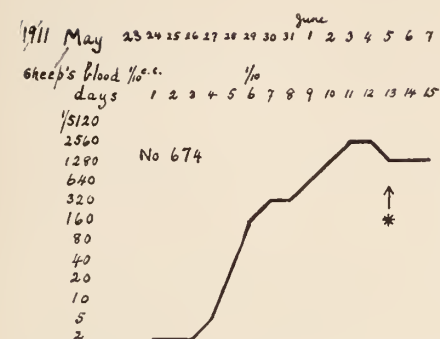 June
1911 May 23 24 25 26 27 28 29 30 31 1 2 3 4 5 6 7
Sheep's blood 1/10 c.c. 1/10
days 1 2 3 4 5 6 7 8 9 10 11 12 13 14 15
1/5120
2560
1280 No 674
640
320
160
80
40
20
10
5
2